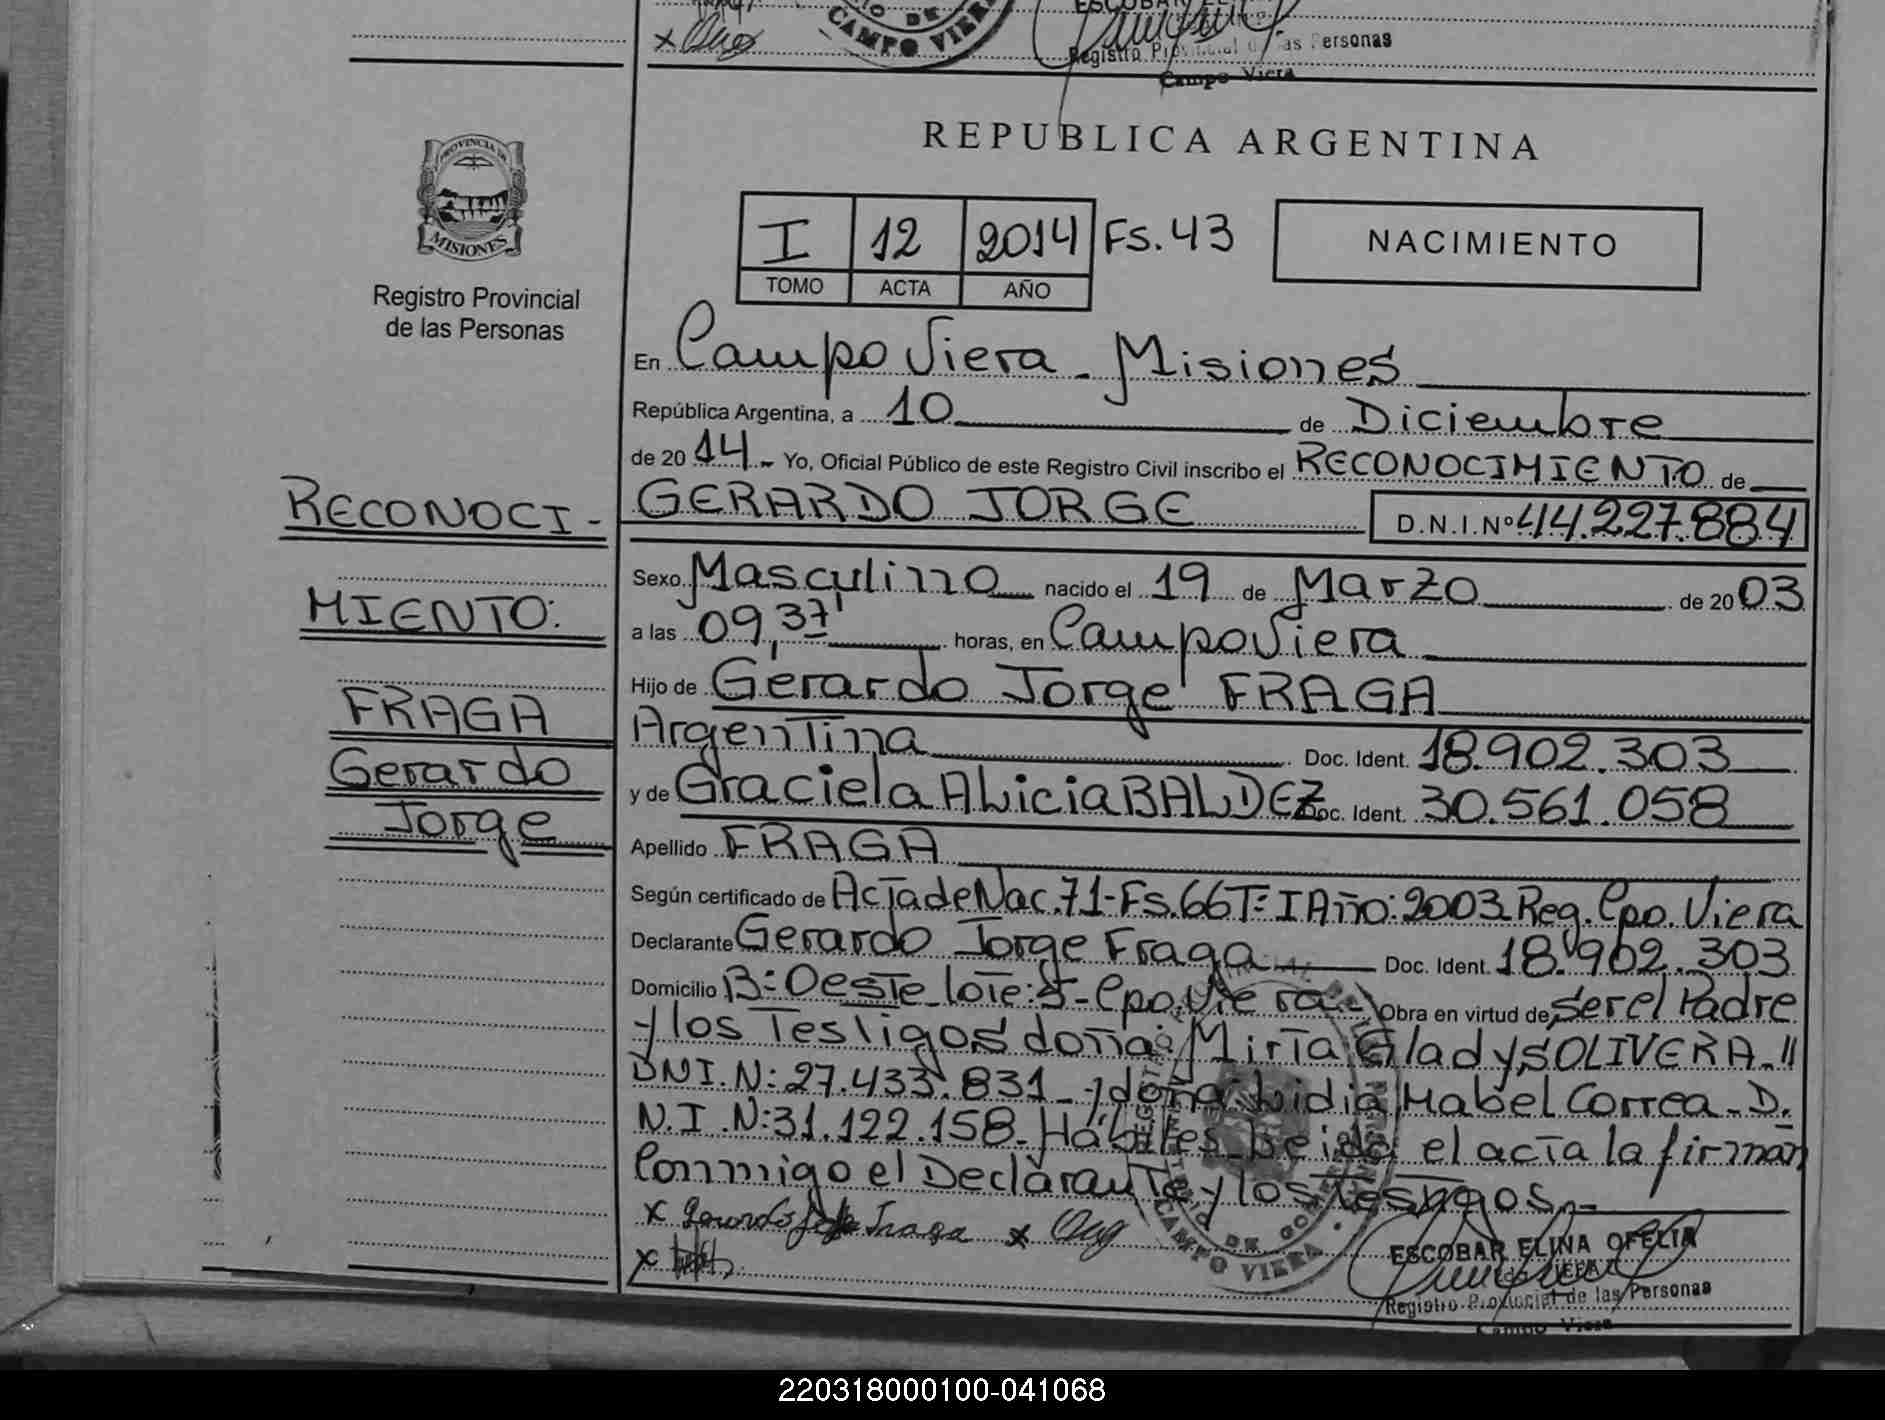 CAMPO VIERA
Registro Provincial de las Personas
Campo Viera
PROVINCIA DE
MISIONES
Registro Provincial
de las Personas
REPUBLICA ARGENTINA
I 12 2014 Fs. 43
TOMO ACTA AÑO
NACIMIENTO
En Campo Viera - Misiones
República Argentina, a 10 de Diciembre
de 2014 - Yo, Oficial Público de este Registro Civil inscribo el RECONOCIMIENTO de
GERARDO JORGE D.N.I.Nº 44.227.884
Sexo Masculino nacido el 19 de Marzo de 2003
a las 09,37' horas, en Campo Viera
Hijo de Gerardo Jorge FRAGA
Argentina Doc. Ident. 18.902.303
y de Graciela ALicia BALDEZ Doc. Ident. 30.561.058
Apellido FRAGA
Según certificado de Acta de Nac. 71-Fs.66 T=I Año: 2003 Reg. Cpo. Viera
Declarante Gerardo Jorge Fraga Doc. Ident. 18.902.303
Domicilio B=Oeste lote: Cpo. Viera - Obra en virtud de ser el Padre
y los Testigos doña: Mirta Gladys OLIVERA - "
DNI.N:27.433.831 - y doña Lidia Mabel Correa - D.
N.I.N:31.122.158- Hábiles Leida el acta la firman
Conmigo el Declarante y los Testigos -
x x
x
CAMPO VIERA
ESCOBAR ELINA OFELIA
Registro Provincial de las Personas
Campo Viera
RECONOCI-
MIENTO:
FRAGA
Gerardo
Jorge
220318000100-041068